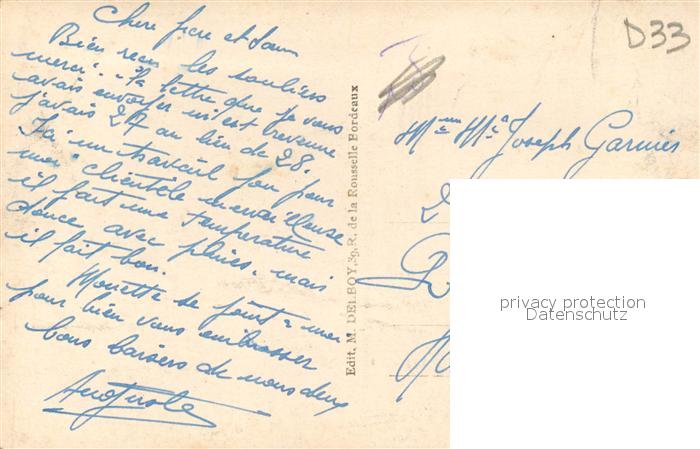 Chere frere et
Bien reçu les souliers
merci. la lettre que je vous
avais envoyer m'est revenue
j'avais 27 au lieu de 28.
J'ai un travail fou pour
moi clientèle merveilleuse
il fait une temperature
douce avec pluies, mais
il fait bon.
Mouette se joint a moi
pour bien vous embrasser
bons baisers de nous deux
Edit. M. DELBOY, 39, R. de la Rousselle Bordeaux
D33
Mr Me Joseph Garmies
privacy protection
Datenschutz